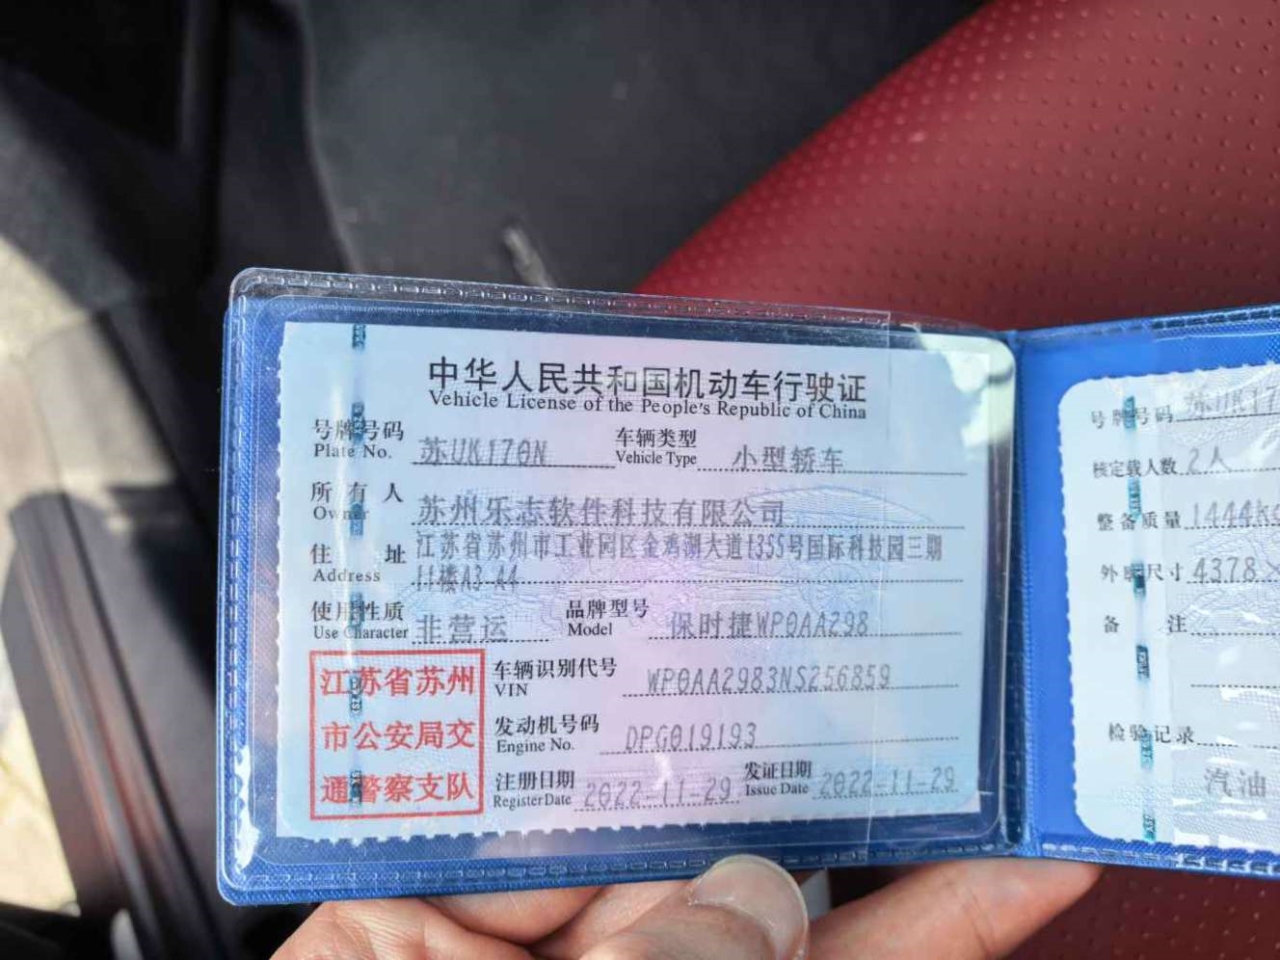 中华人民共和国机动车行驶证
Vehicle License of the People's Republic of China
号牌号码 苏UK170N 车辆类型 小型轿车
Plate No. Vehicle Type
所有人 苏州乐志软件科技有限公司
Owner
住址 江苏省苏州市工业园区金鸡湖大道1355号国际科技园三期
Address 11楼A3-A4
使用性质 非营运 品牌型号 保时捷WP0AA298
Use Character Model
江苏省苏州
市公安局交
通警察支队
车辆识别代号 WP0AA2983NS256859
VIN
发动机号码 DPG019193
Engine No.
注册日期 2022-11-29 发证日期 2022-11-29
Register Date Issue Date
号牌号码 苏UK17
核定载人数 2人
整备质量 1444kg
外廓尺寸 4378×
备注
检验记录
汽油